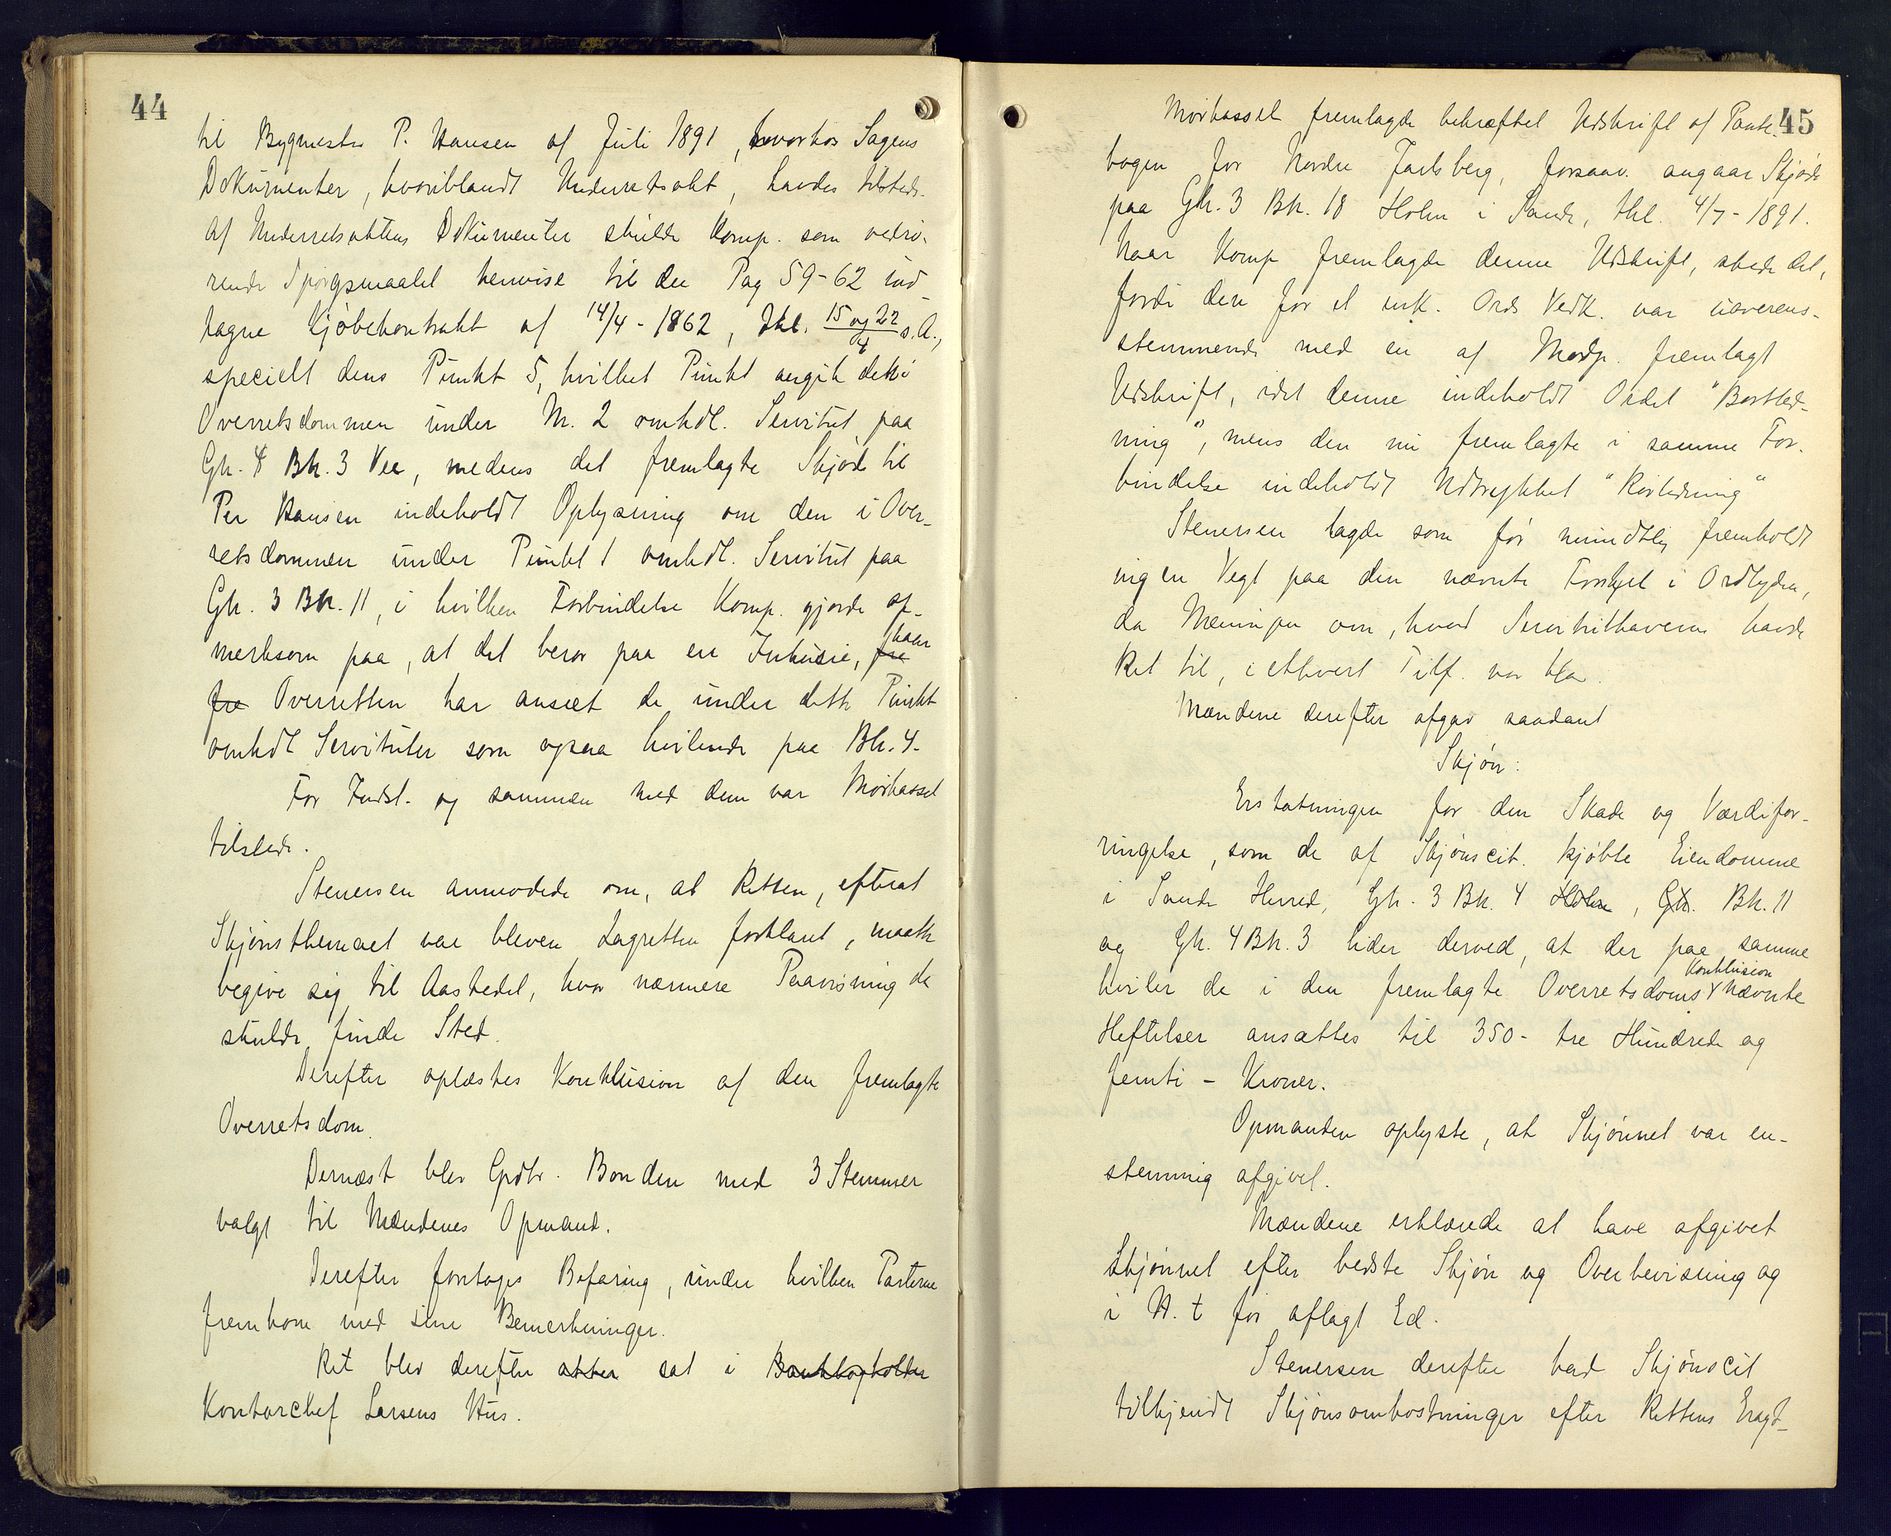 44
til Bygmester P. Hansen af Juli 1891, hvorhos Sagens
Dokumenter, hvoriblandt Underretsakt, havdes tilstede.
Af Underretsaktens Dokumenter skulde Komp. som vedrø-
rende Spørgsmaalet henvise til den Pag 59-62 ind-
tagne Kjøbekontrakt af 14/4 - 1862, thl. 15 og 22/4 s. A.,
specielt dens Punkt 5, hvilket Punkt angik det i
Overretsdommen under Nr. 2 omhdl. Servitut paa
Gn. 4 Bn. 3 Vee, medens det fremlagte Skjøde til
Per Hansen indeholdt Oplysning om den i Over-
retsdommen under Punkt 1 omhdl. Servitut paa
Gn. 3 Bn. 11, i hvilken Forbindelse Komp. gjorde op-
merksom paa, at det beror paa en Inkurie, naar
Overretten har anseet de under dette Punkt
omhdl Servituter som ogsaa hvilende paa Bn. 4.
For Indst. og sammen med dem var Mørkassel
tilstede.
Stenersen anmodede om, at Retten, efterat
Skjønsthemaet var bleven Lagretten forklaret, maatte
begive sig til Aastedet, hvor nærmere Paavisning da
skulde finde Sted.
Derefter oplæstes Konklusion af den fremlagte
Overretsdom.
Dernæst blev Grdbr. Bonden med 3 Stemmer
valgt til Mændenes Opmand.
Derefter foretoges Befaring, under hvilken Parterne
fremkom med sine Bemerkninger.
Ret blev derefter atter sat i Bankbogholder
Kontorchef Larsens Hus.
45
Mørkassel fremlagde bekræftet Udskrift af Pante-
bogen for Nordre Jarlsberg, forsaav. angaar Skjøde
paa Gn. 3 Bn. 18 Holm i Sande, thl. 4/7 - 1891.
Naar Komp fremlagde denne Udskrift, skede det,
fordi den for et enk. Ords Vedk. var uoverens-
stemmende med en af Modp. fremlagt
Udskrift, idet denne indeholdt Ordet "Bortled-
ning", mens den nu fremlagte i samme For-
bindelse indeholdt Udtrykket "Rørledning"
Stenersen lagde som før mundtlig fremholdt
ingen Vegt paa den nævnte Forskjel i Ordlyden,
da Meningen om, hvad Servituthaveren havde
Ret til, i ethvert Tilf. var klar.
Mændene derefter afgav saadant
Skjøn:
Erstatningen for den Skade og Værdifor-
ringelse, som de af Skjønscit. kjøbte Eiendomme
i Sande Herred, Gn. 3 Bn. 4 Holm, Gn. Bn. 11
og Gn. 4 Bn. 3 lider derved, at der paa samme
hviler de i den fremlagte Overretsdoms Konklusion nævnte
Heftelser ansættes til 350 - tre Hundrede og
femti - Kroner.
Opmanden oplyste, at Skjønnet var en-
stemmig afgivet.
Mændene erklærede at have afgivet
Skjønnet efter bedste Skjøn og Overbevisning og
i H. t før aflagt Ed.
Stenersen derefter bad Skjønscit
tilkjendt Skjønsomkostninger efter Rettens Eragt-